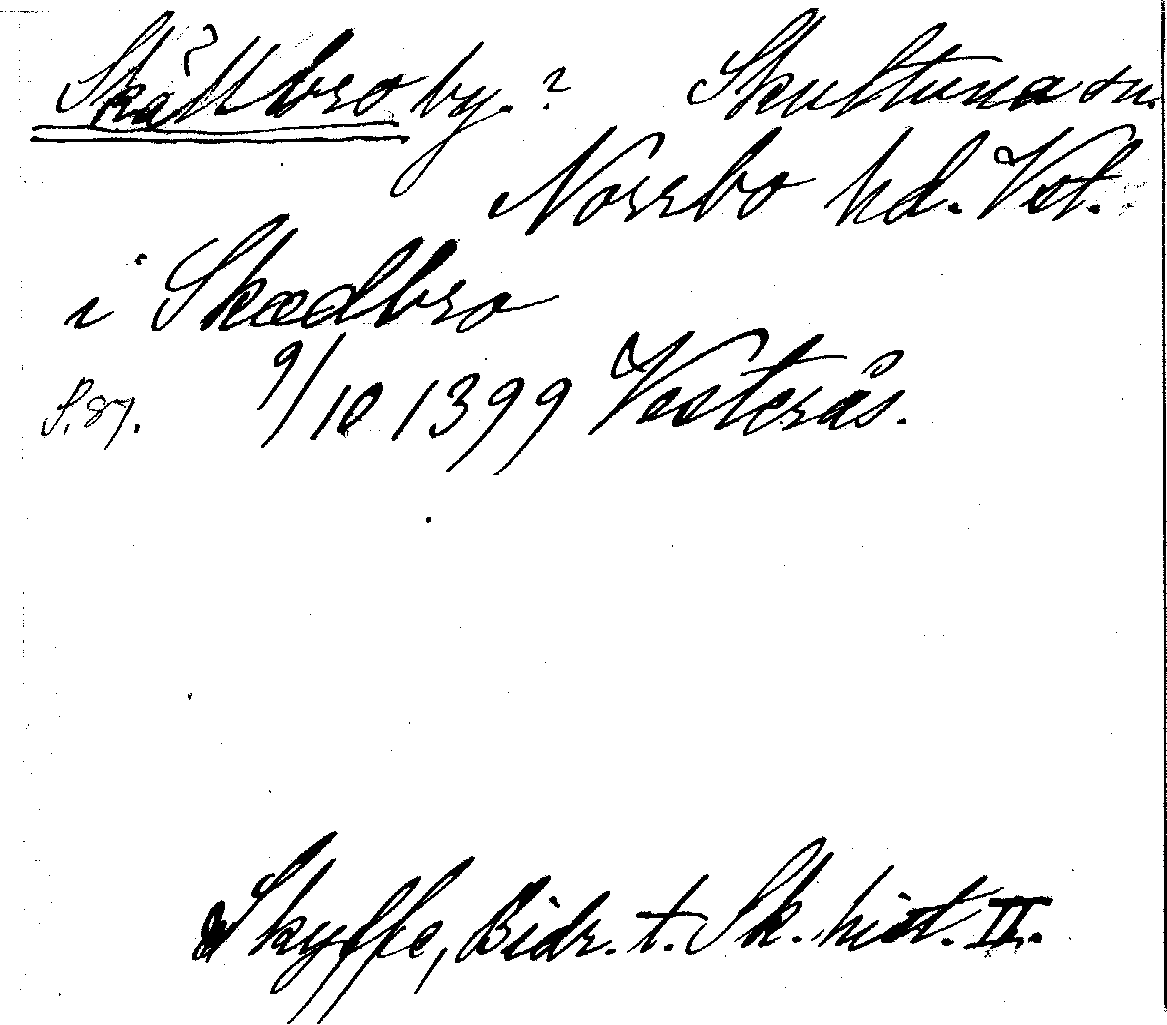 Skällbro by. ? Skultuna sn.
Norrbo hd. Vstl.
i Skædbro
S. 87. 9/10 1399 Vesterås.
Styffe, Bidr. t. Sk. hist. II.